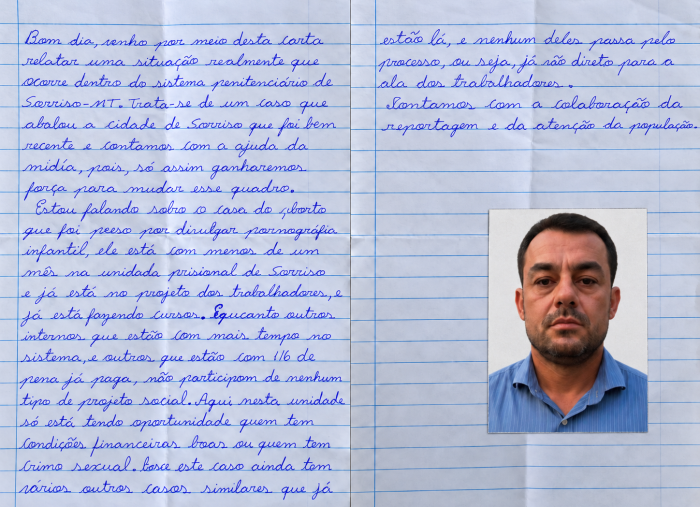 Bom dia, venho por meio desta carta
relatar uma situação realmente que
ocorre dentro do sistema penitenciário de
Sorriso-MT. Trata-se de um caso que
abalou a cidade de Sorriso que foi bem
recente e contamos com a ajuda da
midía, pois, só assim ganharemos
força para mudar esse quadro.
Estou falando sobre o casa do
que foi peeso por divulgar pornográfia
infantil, ele está com menos de um
mês na unidade prisional de Sorriso
e já está no projeto dos trabalhadores, e
já está fazendo cursos. outros
internos que estão com mais tempo no
sistema, e outros que estão com 1/6 de
pena já paga, não participom de nenhum
tipo de projeto social. Aqui nesta unidade
só está tendo oportunidade quem tem
condições financeiras boas ou quem tem
crimo sexual. este caso ainda tem
vários outros casos similares que já
estão lá, e nenhum deles passa pelo
processo, ou seja, já vão direto para a
ala dos trabalhadores.
Contamos com a colaboração da
reportagem e da atenção da população.